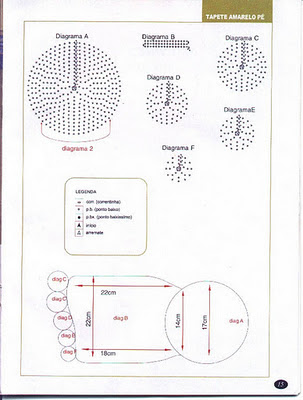 TAPETE AMARELO PÉ
Diagrama A
Diagrama B
Diagrama C
Diagrama D
DiagramaE
Diagrama F
diagrama 2
LEGENDA
corr. (correntinha)
p.b. (ponto baixo)
p.bx. (ponto baixíssimo)
início
arremate
diag C
diag C
diag D
diag E
diag F
22cm
22cm
diag B
18cm
14cm
17cm
diag A
15